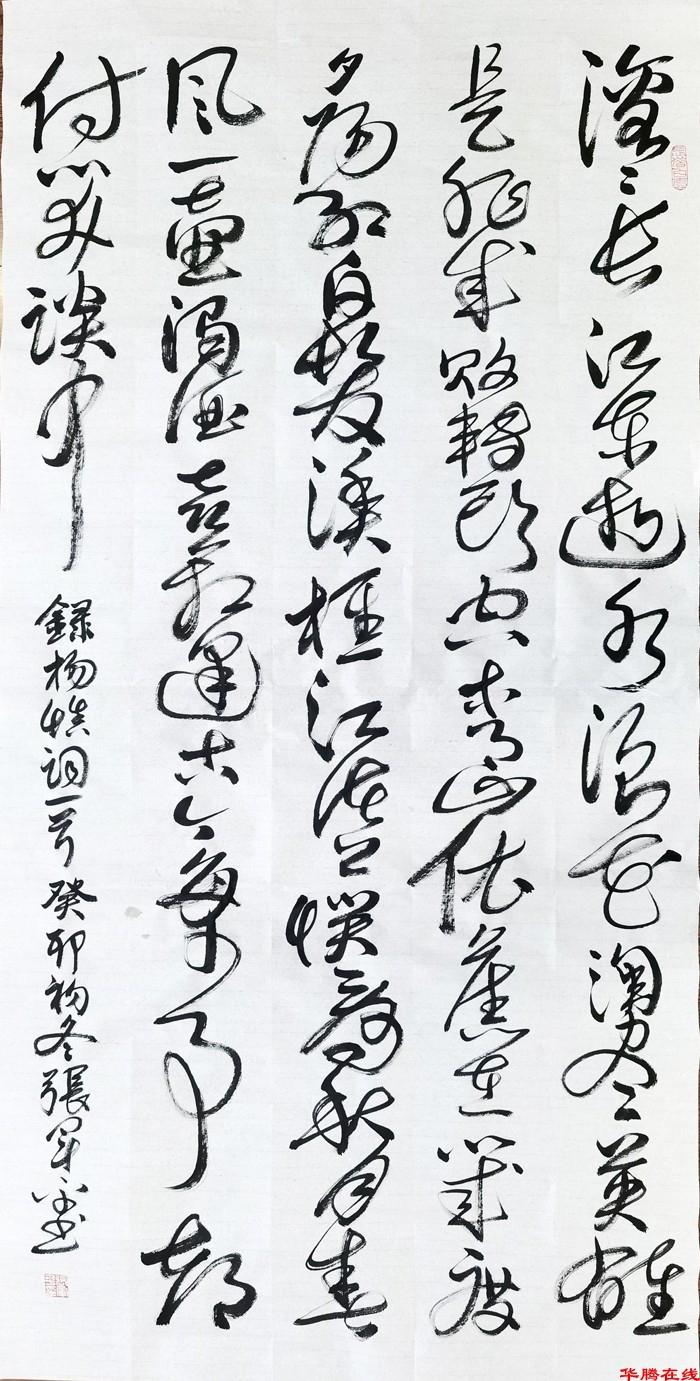 滚滚长江东逝水浪花淘尽英雄
是非成败转头空青山依旧在几度
夕阳红白髮渔樵江渚上惯看秋月春
风一壶浊酒喜相逢古今多少事都
付笑谈中
録杨慎词一首 癸卯初冬張军书
华腾在线